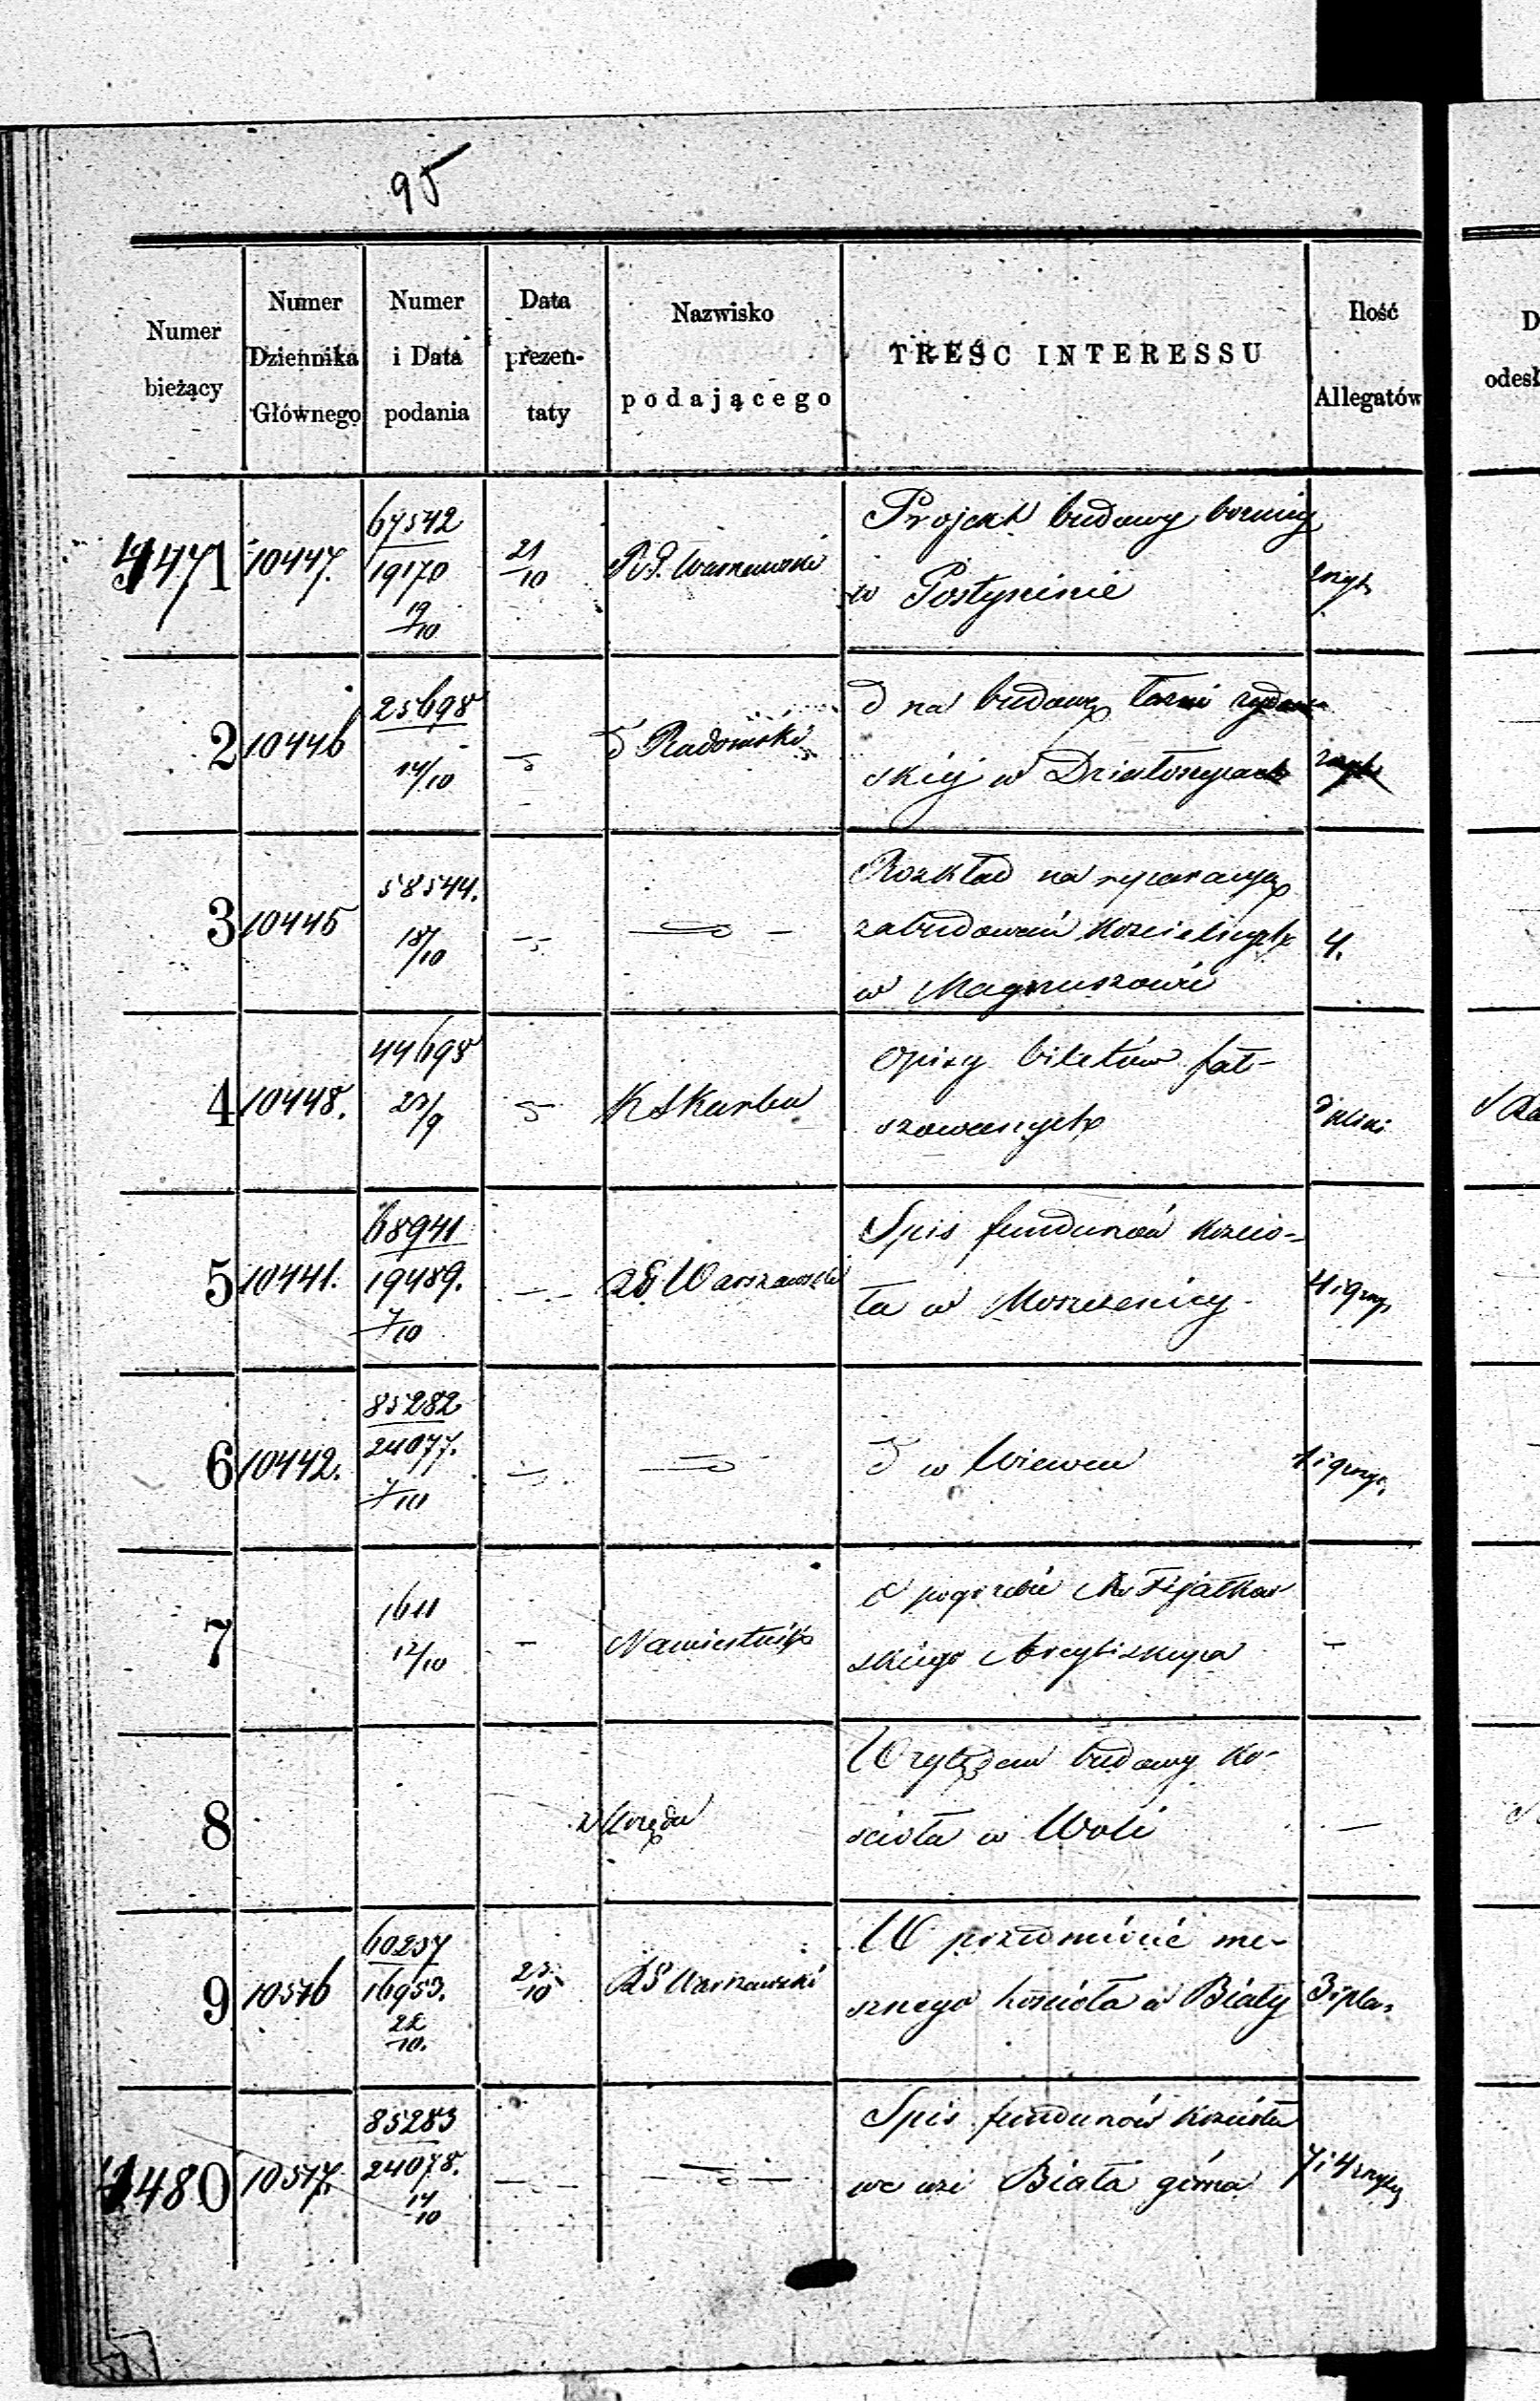 95
Numer bieżący
Numer Dziennika Głównego
Numer i Data podania
Data prezen- taty
Nazwisko podającego
TREŚĆ INTERESSU
Ilość Allegatów
D
odesł
4471 10447. 67542 19170 19/10 21/10 R.G. Warszawski
Projekt budowy boznicy
w Gostyninie
2 10446 25698 14/10 d Radomski
d na budowę łazni żydow
skiej w Działoszycach
3 10445 58544. 18/10
Rozkład na reparacyę
zabudowań kościelnych 4.
w Magnuszewie
4 10448. 44698 23/9 K Skarbu
Opisy biletów fał-
szowanych
5 10441. 68941 19489. 7/10 RG Warszawski
Spis fundunów kościo-
ła w Moszczenicy
6 10442. 85282 24077. 7/10
d w
7 1611 12/10 Namiestnik
O pogrzebie Fijałkow
skiego Arcybiskupa -
8 z Urzędu
Względem budowy ko-
ścioła w Woli -
9 10576 60257 16953. 22/10. 23/10 RG Warszawski
W przedmiocie me-
sznego kościoła w Biały
4480 10517. 85283 24078. 14/10
Spis fundunów kościoła
we wsi Biała góra